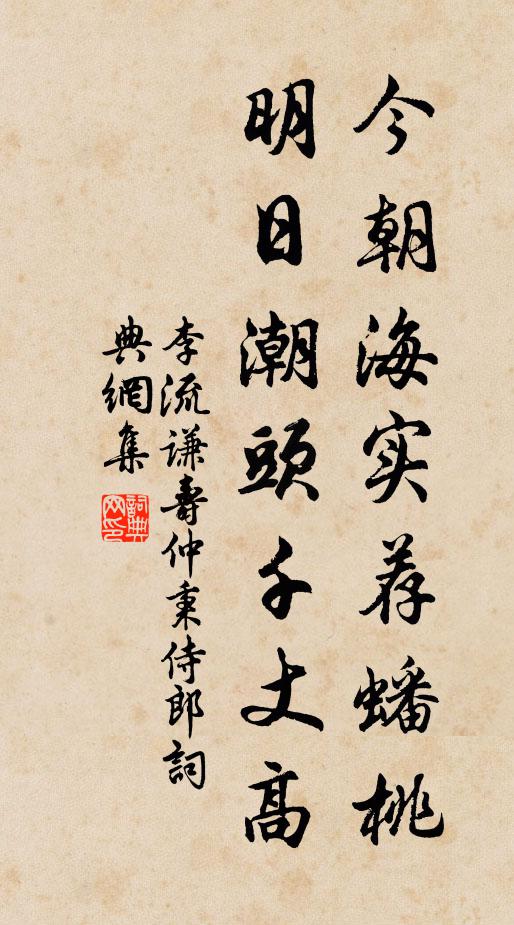 今朝海实荐蟠桃
明日潮頭千丈高
李流谦壽仲秉侍郎詞
典網集
詞典网印